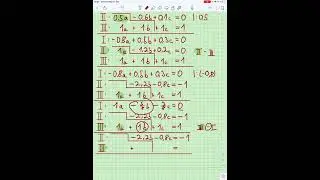 II: 0,5a - 0,6b + 0,1c = 0 | : 0,5
III: 1a + 1b + 1c = 1
I: -0,8a + 0,5b + 0,3c = 0
II: 1a - 1,2b + 0,2c = 0
III: 1a + 1b + 1c = 1
I: -0,8a + 0,5b + 0,3c = 0 | : (-0,8)
II: -2,2b - 0,8c = -1
III: 1a + 1b + 1c = 1
I: 1a
II: -2,2b - 0,8c = -1
III: 1a + 1b + 1c = 1
II: -2,2b - 0,8c = -1
III: + =